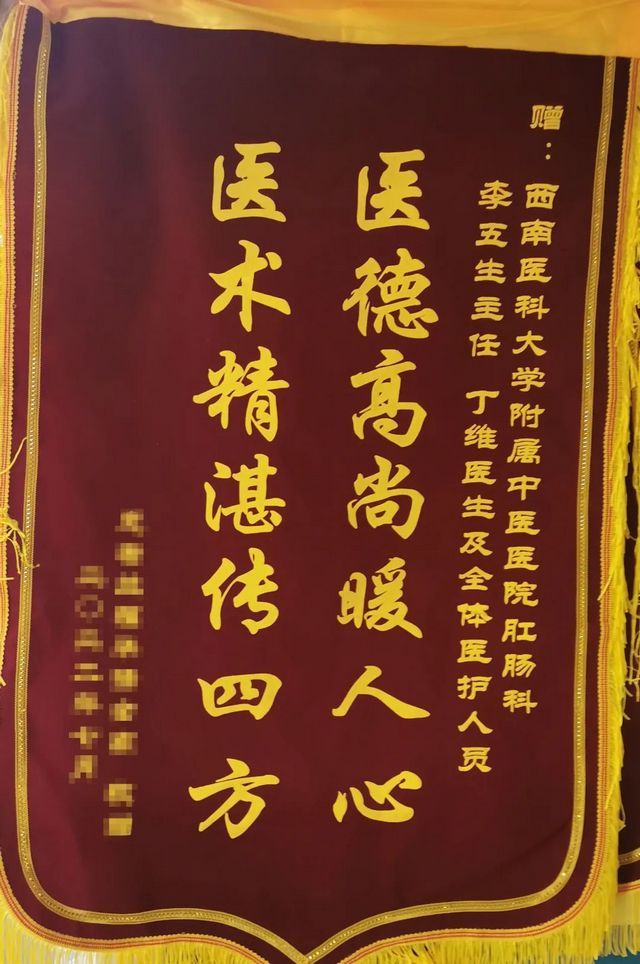 赠：西南医科大学附属中医医院肛肠科
李五生主任 丁维医生及全体医护人员
医德高尚暖人心
医术精湛传四方
二年十月